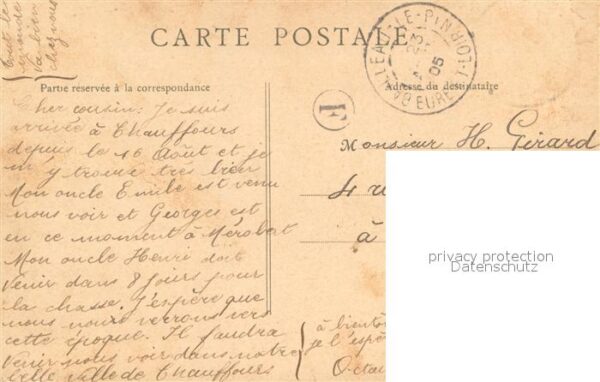 Tout le
monde
va bien
chez nous
CARTE POSTALE
GAILLEAU-LE-PIN
23
05
EURE
Partie reservée à la correspondance
Adresse du destinataire
E
Monsieur H. Girard
4
à
Cher cousin. Je suis
arrivée à Chauffours
depuis le 16 Août et je
m'y trouve très bien
Mon oncle Emile est venu
nous voir et Georges est
en ce moment à Mérobert
Mon oncle Henri doit
venir dans 8 jours pour
la chasse. J'espère que
nous nous verrons vers
cette époque. Il faudra
venir nous voir dans notre
belle ville de Chauffours
à bientôt
je l'espè
Octa
privacy protection
Datenschutz